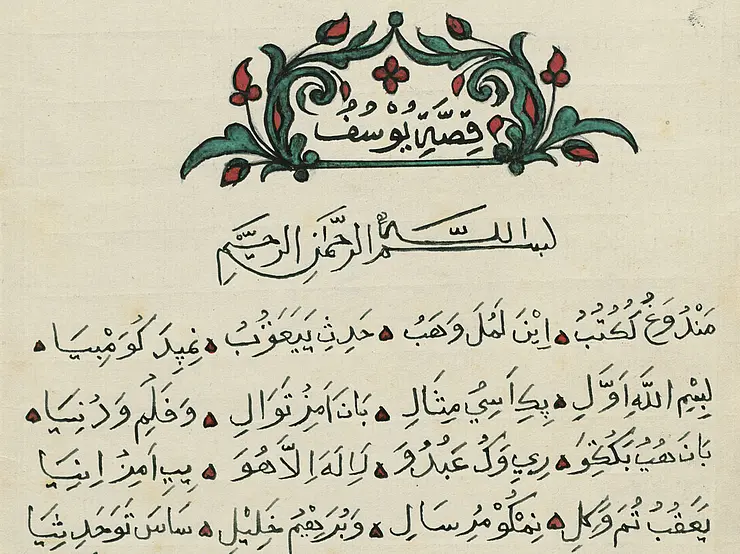 قِصَّةِ يُوسُفُ
بسم اللّه الرَّحمٰنِ الرحيِّمِ
مَنْدُوغُ لَكُتُبُ اِيْنَ لَمُلَ وَهَبُ حَدِثِ يَيَعَقُوْبُ نِمِپِدَ كُوَمْبِيَا
لِبِسْمِ اللَّهِ اَوَّلِ پِكِ اَسِيُ مِثَالِ بَانَ اَمِزُ تَوَالِ وَفَلَمِ وَدُنِيَا
بَانَ هُبُ رِيِ وَكُ عَبُدُوَ لَا اِلَهَ اِلَّا هُوَ پِپِ اَمِزُ اِنِيَا
يَعَقُبُ تُمُ وَكِلِ نِمْكُوْ مُرْسَالِ وَبُرَهِمُ خَلِيْلِ سَاسَ تَوَحَدِثِيَا